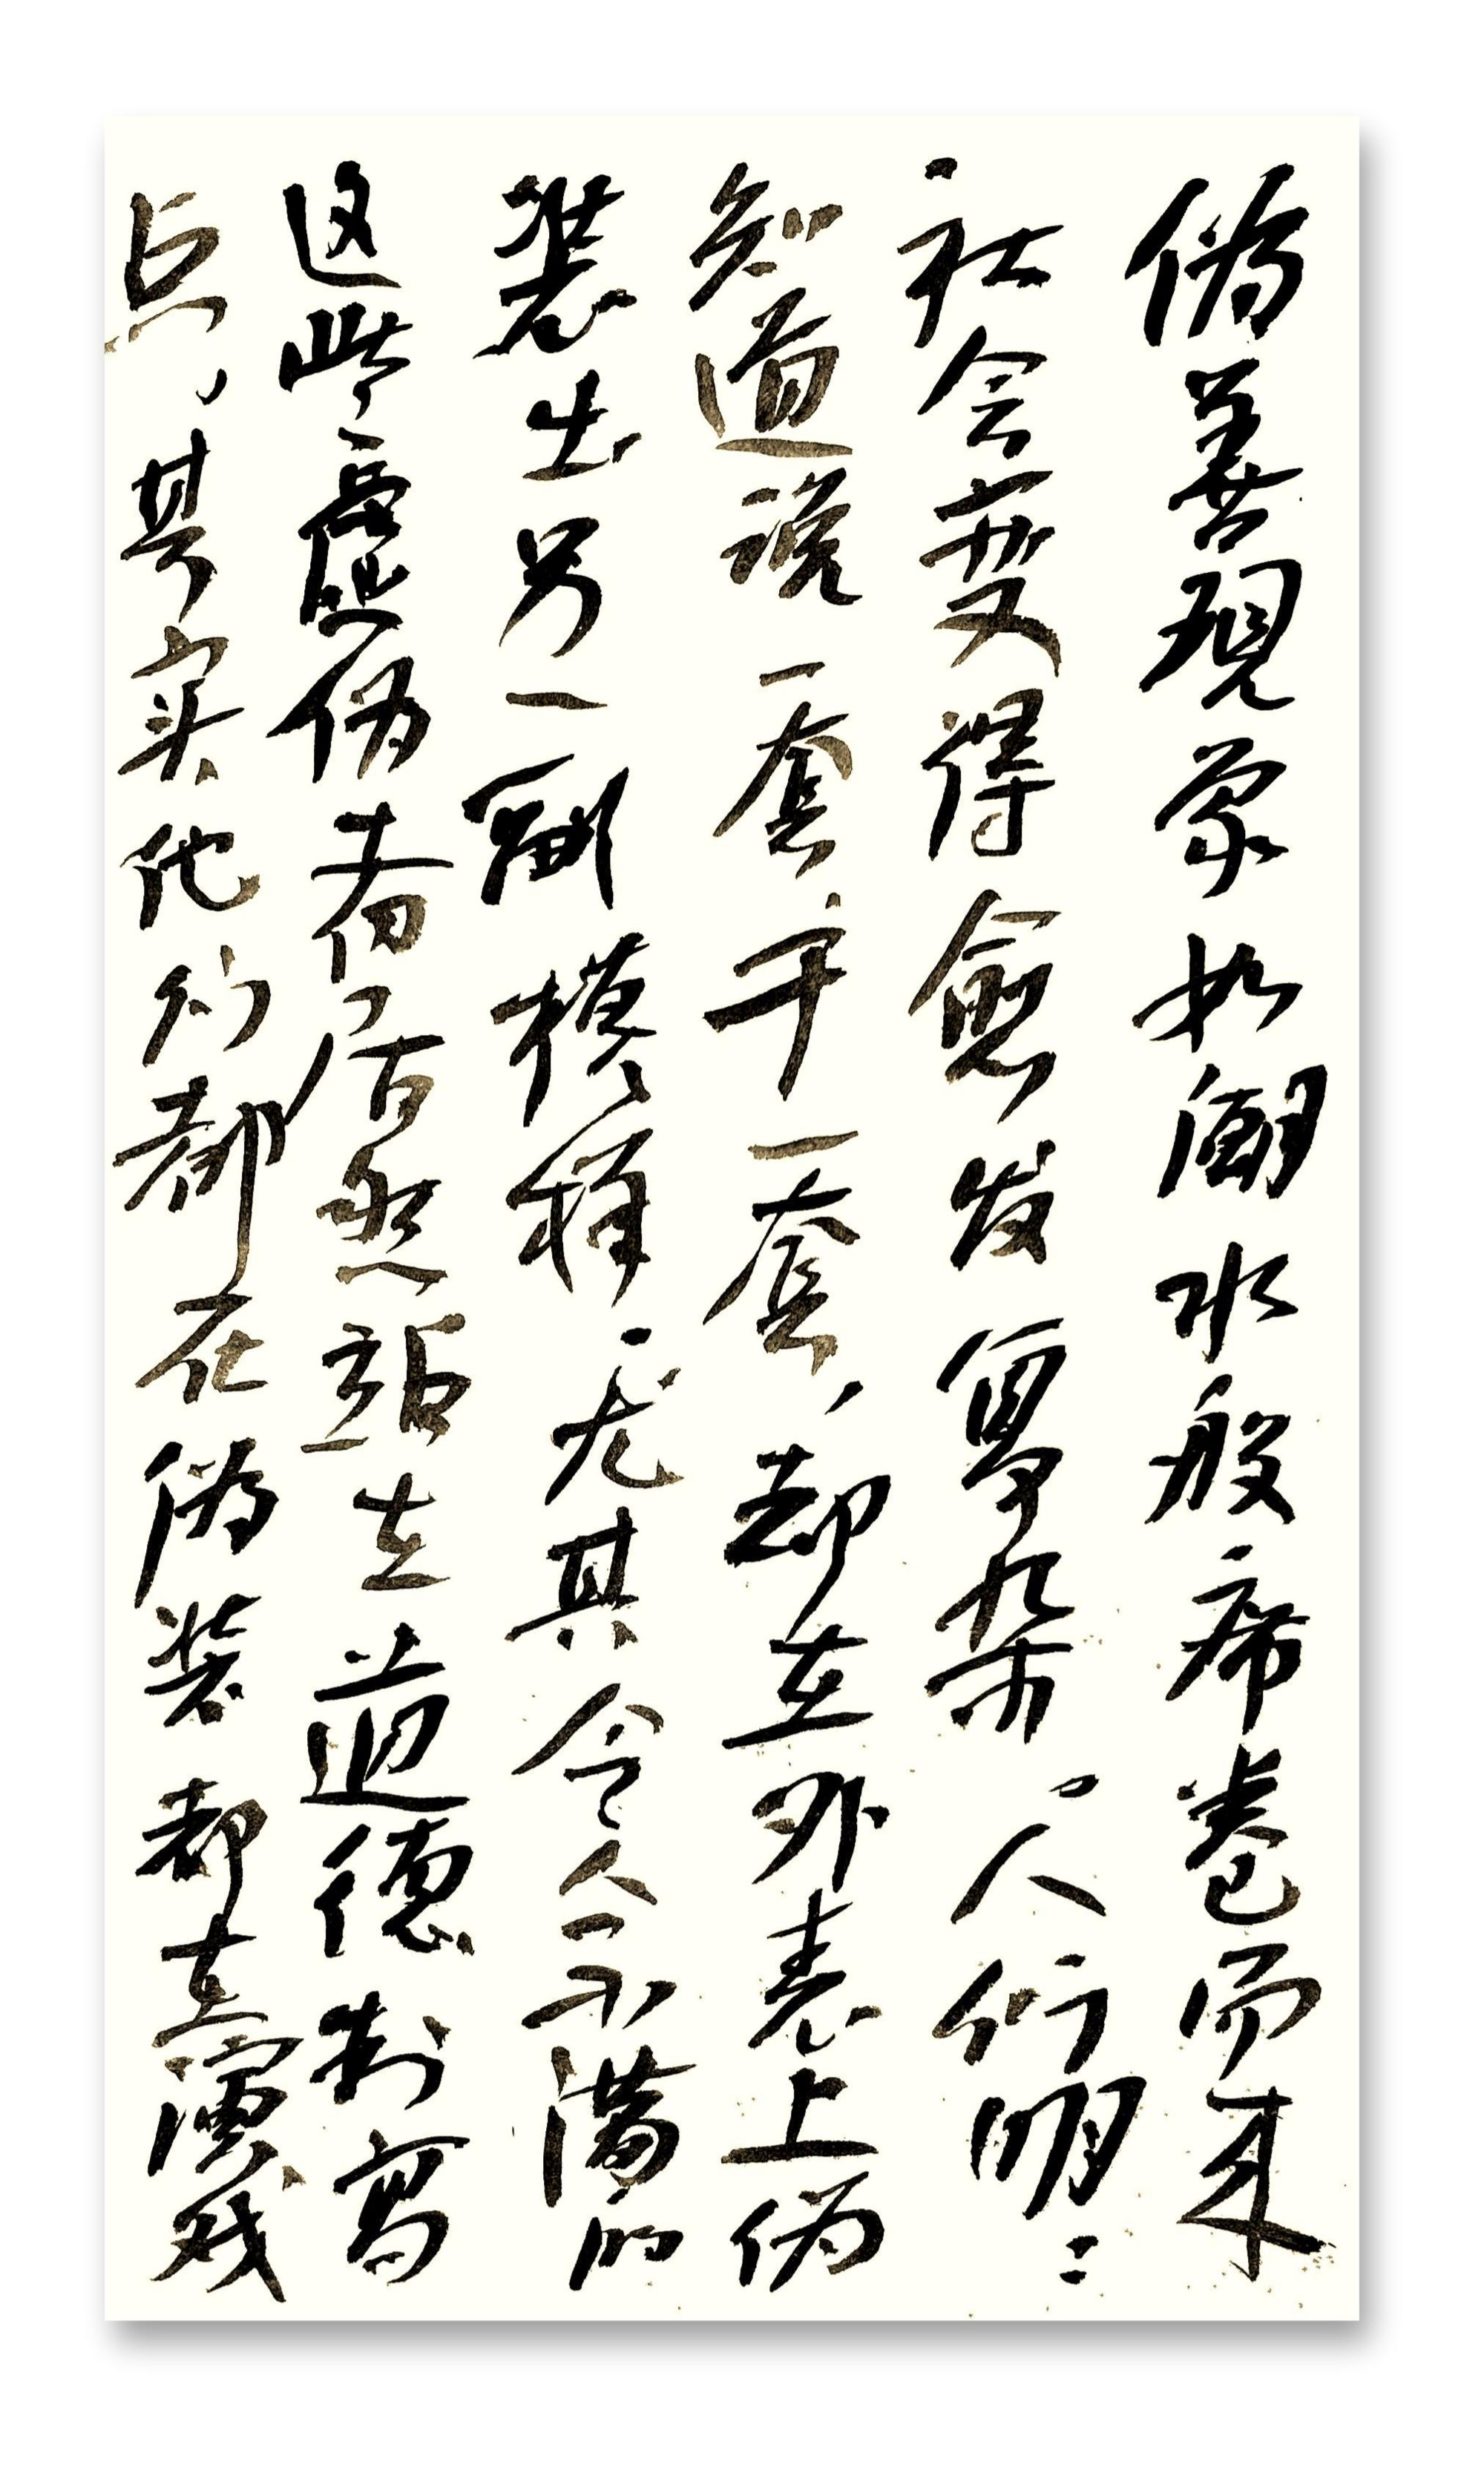 伪善现象如潮水般席卷而来
社会变得愈发复杂。人们明〻
知道说一套干一套，却在外表上伪
装出另一副模样，尤其令人不满的
这些虚伪者居然站在道德制高
点，其实他们都在伪装都在演戏